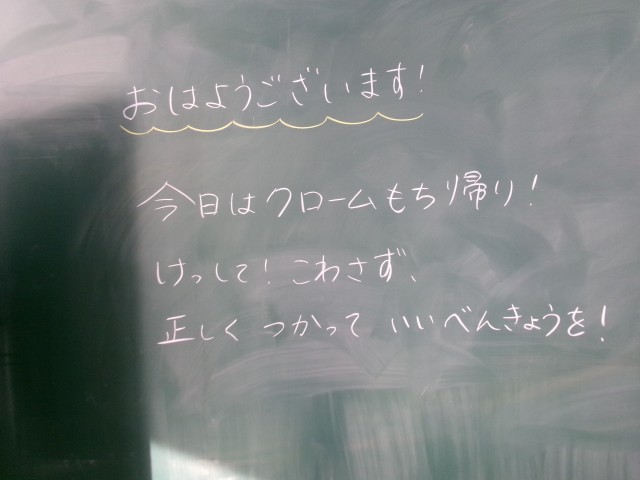 おはようございます!
今日はクロームもち帰り!
けっして!こわさず、
正しくつかって いいべんきょうを!